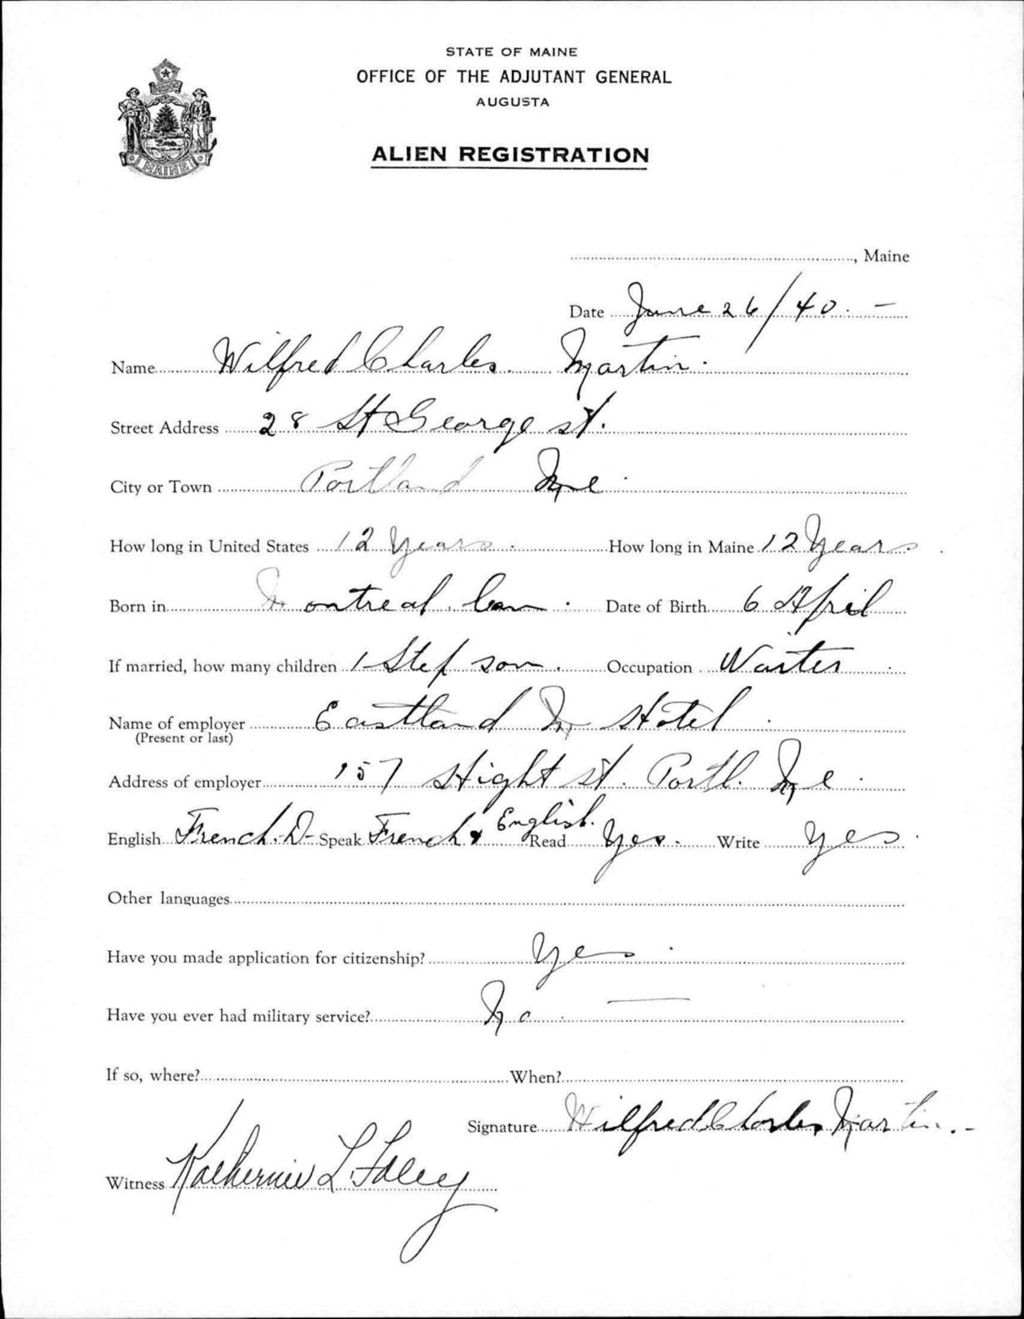 STATE OF MAINE
OFFICE OF THE ADJUTANT GENERAL
AUGUSTA
ALIEN REGISTRATION
MAINE
, Maine
Date June 26/40. -
Name Wilfred Charles Martin.
Street Address 28 St George st.
City or Town Portland Me
How long in United States 12 Years. How long in Maine 12 Years.
Born in Montreal. Can. Date of Birth 6 April
If married, how many children 1 Step son. Occupation Waiter
Name of employer Eastland Hotel
(Present or last)
Address of employer 157 Hight st. Portl. Me.
English French.D- Speak French & English. Read Yes. Write Yes
Other languages
Have you made application for citizenship? Yes
Have you ever had military service? No. —
If so, where? When?
Signature Wilfred Charles Martin.-
Witness Katherine L. Foley